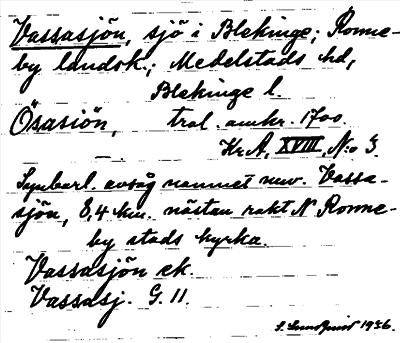 Vassasjön, sjö i Blekinge; Ronne-
by landsk.; Medelstads hd,
Blekinge l.
Ösasiön, trol. omkr. 1700.
Kr A, XVIII, N:o 3.
Synbarl. avsåg namnet nuv. Vassa-
sjön, 8,4 km. nästan rakt N Ronne-
by stads kyrka.
Vassasjön ek.
Vassasj. G. 11.
S. Lundqvist 1936.